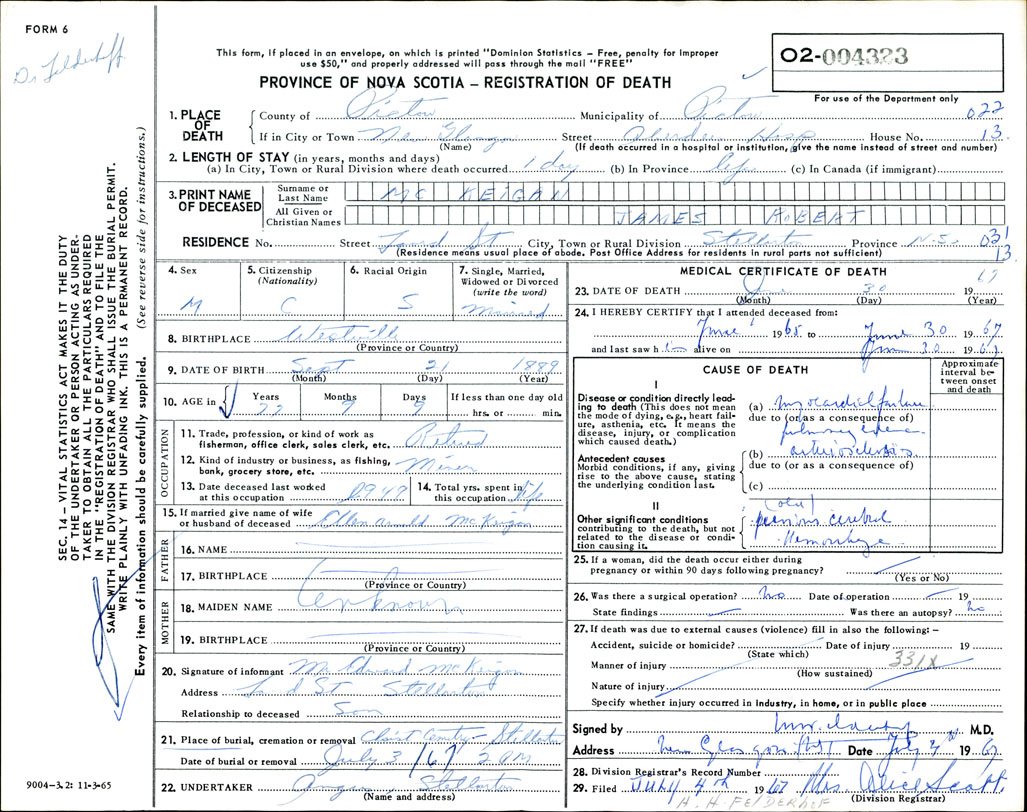 FORM 6
This form, If placed in an envelope, on which is printed "Dominion Statistics – Free, penalty for Improper
use $50," and properly addressed will pass through the mail "FREE"
PROVINCE OF NOVA SCOTIA – REGISTRATION OF DEATH
O2-004323
For use of the Department only
SEC. 14 – VITAL STATISTICS ACT MAKES IT THE DUTY
OF THE UNDERTAKER OR PERSON ACTING AS UNDER-
TAKER TO OBTAIN ALL THE PARTICULARS REQUIRED
IN THE "REGISTRATION OF DEATH" AND TO FILE THE
SAME WITH THE DIVISION REGISTRAR WHO SHALL ISSUE THE BURIAL PERMIT.
WRITE PLAINLY WITH UNFADING INK. THIS IS A PERMANENT RECORD.
Every item of information should be carefully supplied. (See reverse side for instructions.)
1. PLACE OF DEATH
County of Pictou Municipality of Pictou 022
If in City or Town New Glasgow Street Aberdeen Hosp House No. 13
(Name) (If death occurred in a hospital or institution, give the name instead of street and number)
2. LENGTH OF STAY (in years, months and days)
(a) In City, Town or Rural Division where death occurred 1 day (b) In Province Life (c) In Canada (if immigrant)
3. PRINT NAME OF DECEASED
Surname or Last Name MC KEIGAN
All Given or Christian Names JAMES ROBERT
RESIDENCE No. Street St City, Town or Rural Division Stellarton Province N.S. 031
(Residence means usual place of abode. Post Office Address for residents in rural parts not sufficient) 13.
4. Sex M
5. Citizenship (Nationality) C
6. Racial Origin S
7. Single, Married, Widowed or Divorced (write the word) Married
8. BIRTHPLACE Westville
(Province or Country)
9. DATE OF BIRTH Sept 21 1889
(Month) (Day) (Year)
10. AGE in Years 77 Months 9 Days 9 If less than one day old
hrs. or min.
OCCUPATION
11. Trade, profession, or kind of work as fisherman, office clerk, sales clerk, etc. Retired
12. Kind of industry or business, as fishing, bank, grocery store, etc. Miner
13. Date deceased last worked at this occupation 1949
14. Total yrs. spent in this occupation Life
15. If married give name of wife or husband of deceased Ellen Arnold McKeigan
FATHER
16. NAME
17. BIRTHPLACE
(Province or Country)
Unknown
MOTHER
18. MAIDEN NAME
19. BIRTHPLACE
(Province or Country)
20. Signature of informant Mr Edward McKeigan
Address St Stellarton
Relationship to deceased Son
21. Place of burial, cremation or removal Christ Cemetry – Stellarton
Date of burial or removal July 3/67 2 PM
22. UNDERTAKER Stellarton
(Name and address)
9004-3.2: 11-3-65
MEDICAL CERTIFICATE OF DEATH
23. DATE OF DEATH June 30 1967
(Month) (Day) (Year)
24. I HEREBY CERTIFY that I attended deceased from:
June 1 1965 to June 30 1967
and last saw h im alive on June 30 1967
CAUSE OF DEATH
Approximate interval between onset and death
I
Disease or condition directly leading to death (This does not mean the mode of dying, e.g., heart failure, asthenia, etc. It means the disease, injury, or complication which caused death.)
(a) myocardial failure
due to (or as a consequence of)
pulmonary edema
Antecedent causes
Morbid conditions, if any, giving rise to the above cause, stating the underlying condition last.
(b) arteriosclerosis
due to (or as a consequence of)
(c)
II
Other significant conditions contributing to the death, but not related to the disease or condition causing it.
(old)
previous cerebral
hemorrhage
25. If a woman, did the death occur either during
pregnancy or within 90 days following pregnancy?
(Yes or No)
26. Was there a surgical operation? No Date of operation 19
State findings Was there an autopsy? No
27. If death was due to external causes (violence) fill in also the following: –
Accident, suicide or homicide? Date of injury 19
(State which)
331X
Manner of injury
(How sustained)
Nature of injury
Specify whether injury occurred in industry, in home, or in public place
Signed by M.D.
Address New Glasgow Date July 4th 1967
28. Division Registrar's Record Number
29. Filed July 4th 1967 Mrs. Alice Scott
(Division Registrar)
H.H. FELDERHOF
Dr Felderhoff